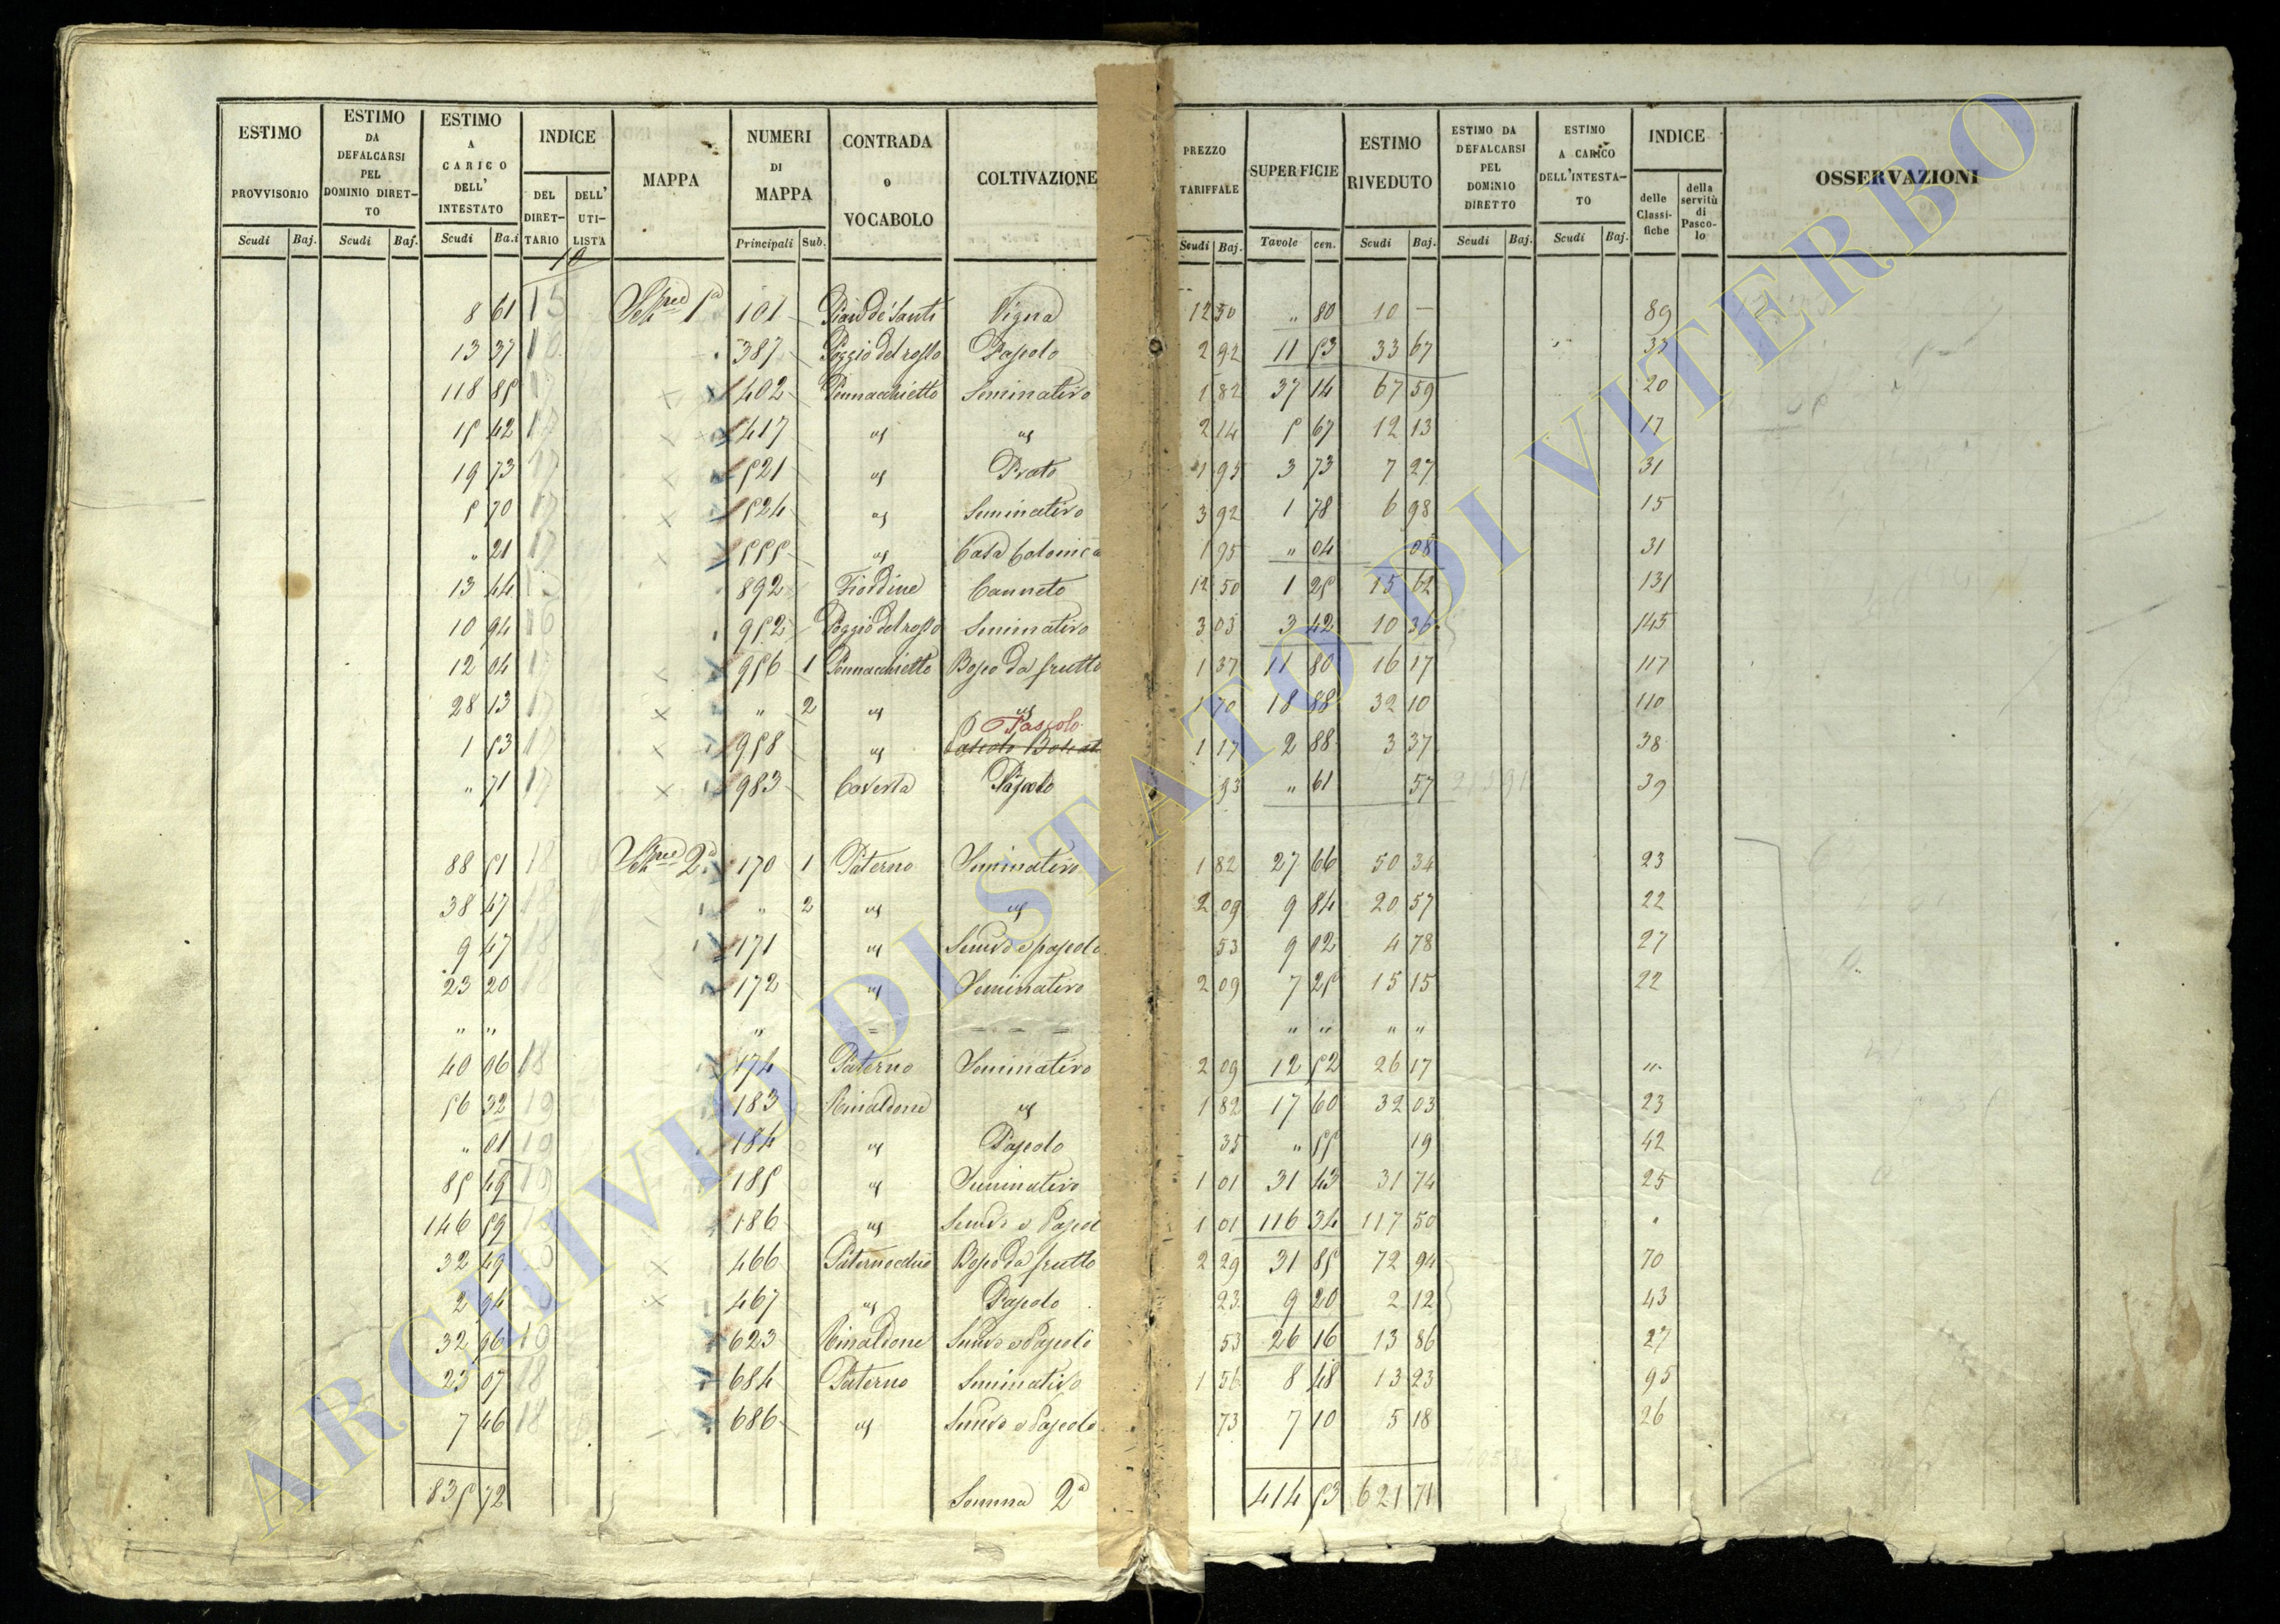 ESTIMO PROVVISORIO Scudi Baj.
ESTIMO DA DEFALCARSI PEL DOMINIO DIRETTO Scudi Baj.
ESTIMO A CARICO DELL' INTESTATO Scudi Ba.i
INDICE DEL DIRETTARIO DELL' UTILISTA
MAPPA
NUMERI DI MAPPA Principali Sub.
CONTRADA o VOCABOLO
COLTIVAZIONE
PREZZO TARIFFALE Scudi Baj.
SUPERFICIE Tavole cen.
ESTIMO RIVEDUTO Scudi Baj.
ESTIMO DA DEFALCARSI PEL DOMINIO DIRETTO Scudi Baj.
ESTIMO A CARICO DELL'INTESTATO Scudi Baj.
INDICE delle Classifiche della servitù di Pascolo
OSSERVAZIONI
10
8 61 15 1a 101 Pian de Santi Vigna 12 50 " 80 10 — 89
13 37 387 Poggio del rosso Pascolo 2 92 11 53 33 67 33
118 85 17 402 Pennacchietto Seminativo 1 82 37 14 67 59 20
15 42 17 417 2 14 5 67 12 13 17
19 73 17 521 Prato 1 95 3 73 7 27 31
5 70 17 524 Seminativo 3 92 1 78 6 98 15
" 21 17 555 Casa Colonica 1 95 " 04 08 31
13 44 892 Fiordine Canneto 12 50 1 25 15 62 131
10 94 16 952 Poggio del rosso Seminativo 3 05 3 42 10 36 145
12 04 17 956 1 Pennacchietto Bosco da frutto 1 37 11 80 16 17 117
28 13 17 " 2 1 70 18 88 32 10 110
Pascolo
1 53 17 958 1 17 2 88 3 37 38
" 71 17 983 Caserta Pascolo 93 " 61 57 39
88 51 18 2a 170 1 Paterno Seminativo 1 82 27 66 50 34 23
38 47 18 " 2 2 09 9 84 20 57 22
9 47 18 171 Semivo e pascolo 53 9 02 4 78 27
23 20 18 172 Seminativo 2 09 7 25 15 15 22
" " " = = = = " " " "
40 06 18 174 Paterno Seminativo 2 09 12 52 26 17 "
56 32 19 183 Rinaldone 1 82 17 60 32 03 23
" 01 19 184 Pascolo 35 " 55 19 42
85 49 19 185 Seminativo 1 01 31 43 31 74 25
146 59 186 1 01 116 34 117 50 "
32 49 466 Paternocchio Bosco da frutto 2 29 31 85 72 94 70
2 94 467 Pascolo 23 9 20 2 12 43
32 96 19 623 Rinaldone Semivo e Pascolo 53 26 16 13 86 27
23 07 18 684 Paterno Seminativo 1 56 8 48 13 23 95
7 46 18 686 Semivo e Pascolo 73 7 10 5 18 26
835 72 Somma 2a 414 53 621 71
ARCHIVIO DI STATO DI VITERBO